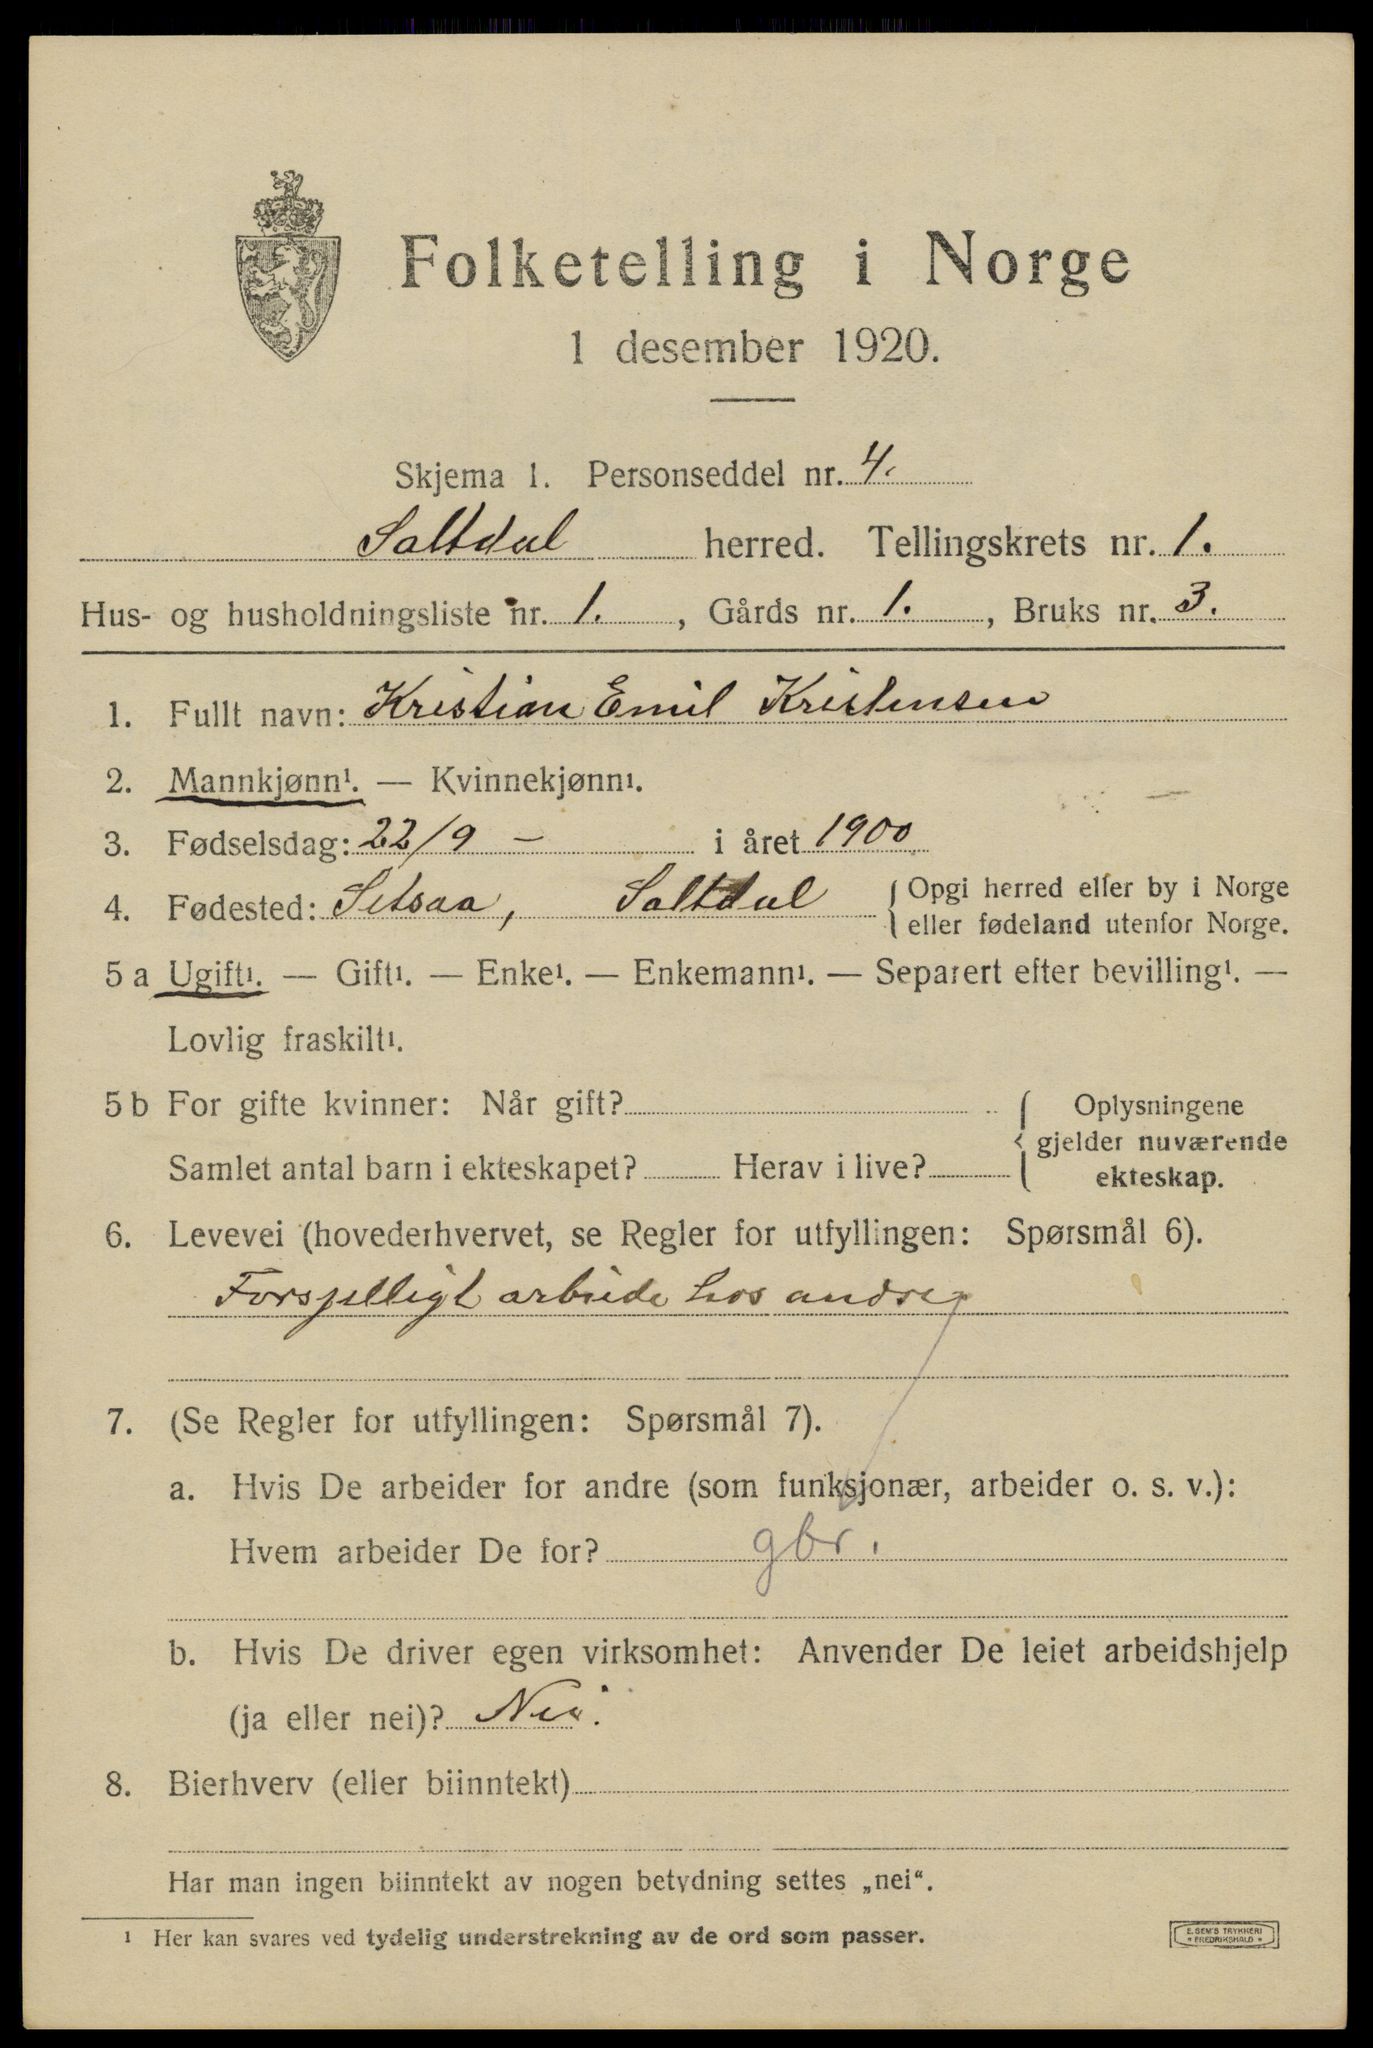 Folketelling i Norge
1 desember 1920.
Skjema 1. Personseddel nr. 4.
Saltdal herred. Tellingskrets nr. 1.
Hus- og husholdningsliste nr. 1. , Gårds nr. 1. , Bruks nr. 3.
1. Fullt navn: Kristian Emil Kristensen
2. Mannkjønn¹. — Kvinnekjønn¹.
3. Fødselsdag: 22/9 – i året 1900
4. Fødested: Setsaa, Saltdal { Opgi herred eller by i Norge
eller fødeland utenfor Norge.
5 a Ugift¹. — Gift¹. — Enke¹. — Enkemann¹. — Separert efter bevilling¹. —
Lovlig fraskilt¹.
5 b For gifte kvinner: Når gift? { Oplysningene
gjelder nuværende
Samlet antal barn i ekteskapet? Herav i live? ekteskap.
6. Levevei (hovederhvervet, se Regler for utfyllingen: Spørsmål 6).
Forsjelligt arbeide hos andre
7. (Se Regler for utfyllingen: Spørsmål 7).
a. Hvis De arbeider for andre (som funksjonær, arbeider o. s. v.):
Hvem arbeider De for? gbr.
b. Hvis De driver egen virksomhet: Anvender De leiet arbeidshjelp
(ja eller nei)? Nei.
8. Bierhverv (eller biinntekt)
Har man ingen biinntekt av nogen betydning settes „nei“.
¹ Her kan svares ved tydelig understrekning av de ord som passer.
E. SEM'S TRYKKERI
* FREDRIKSHALD *